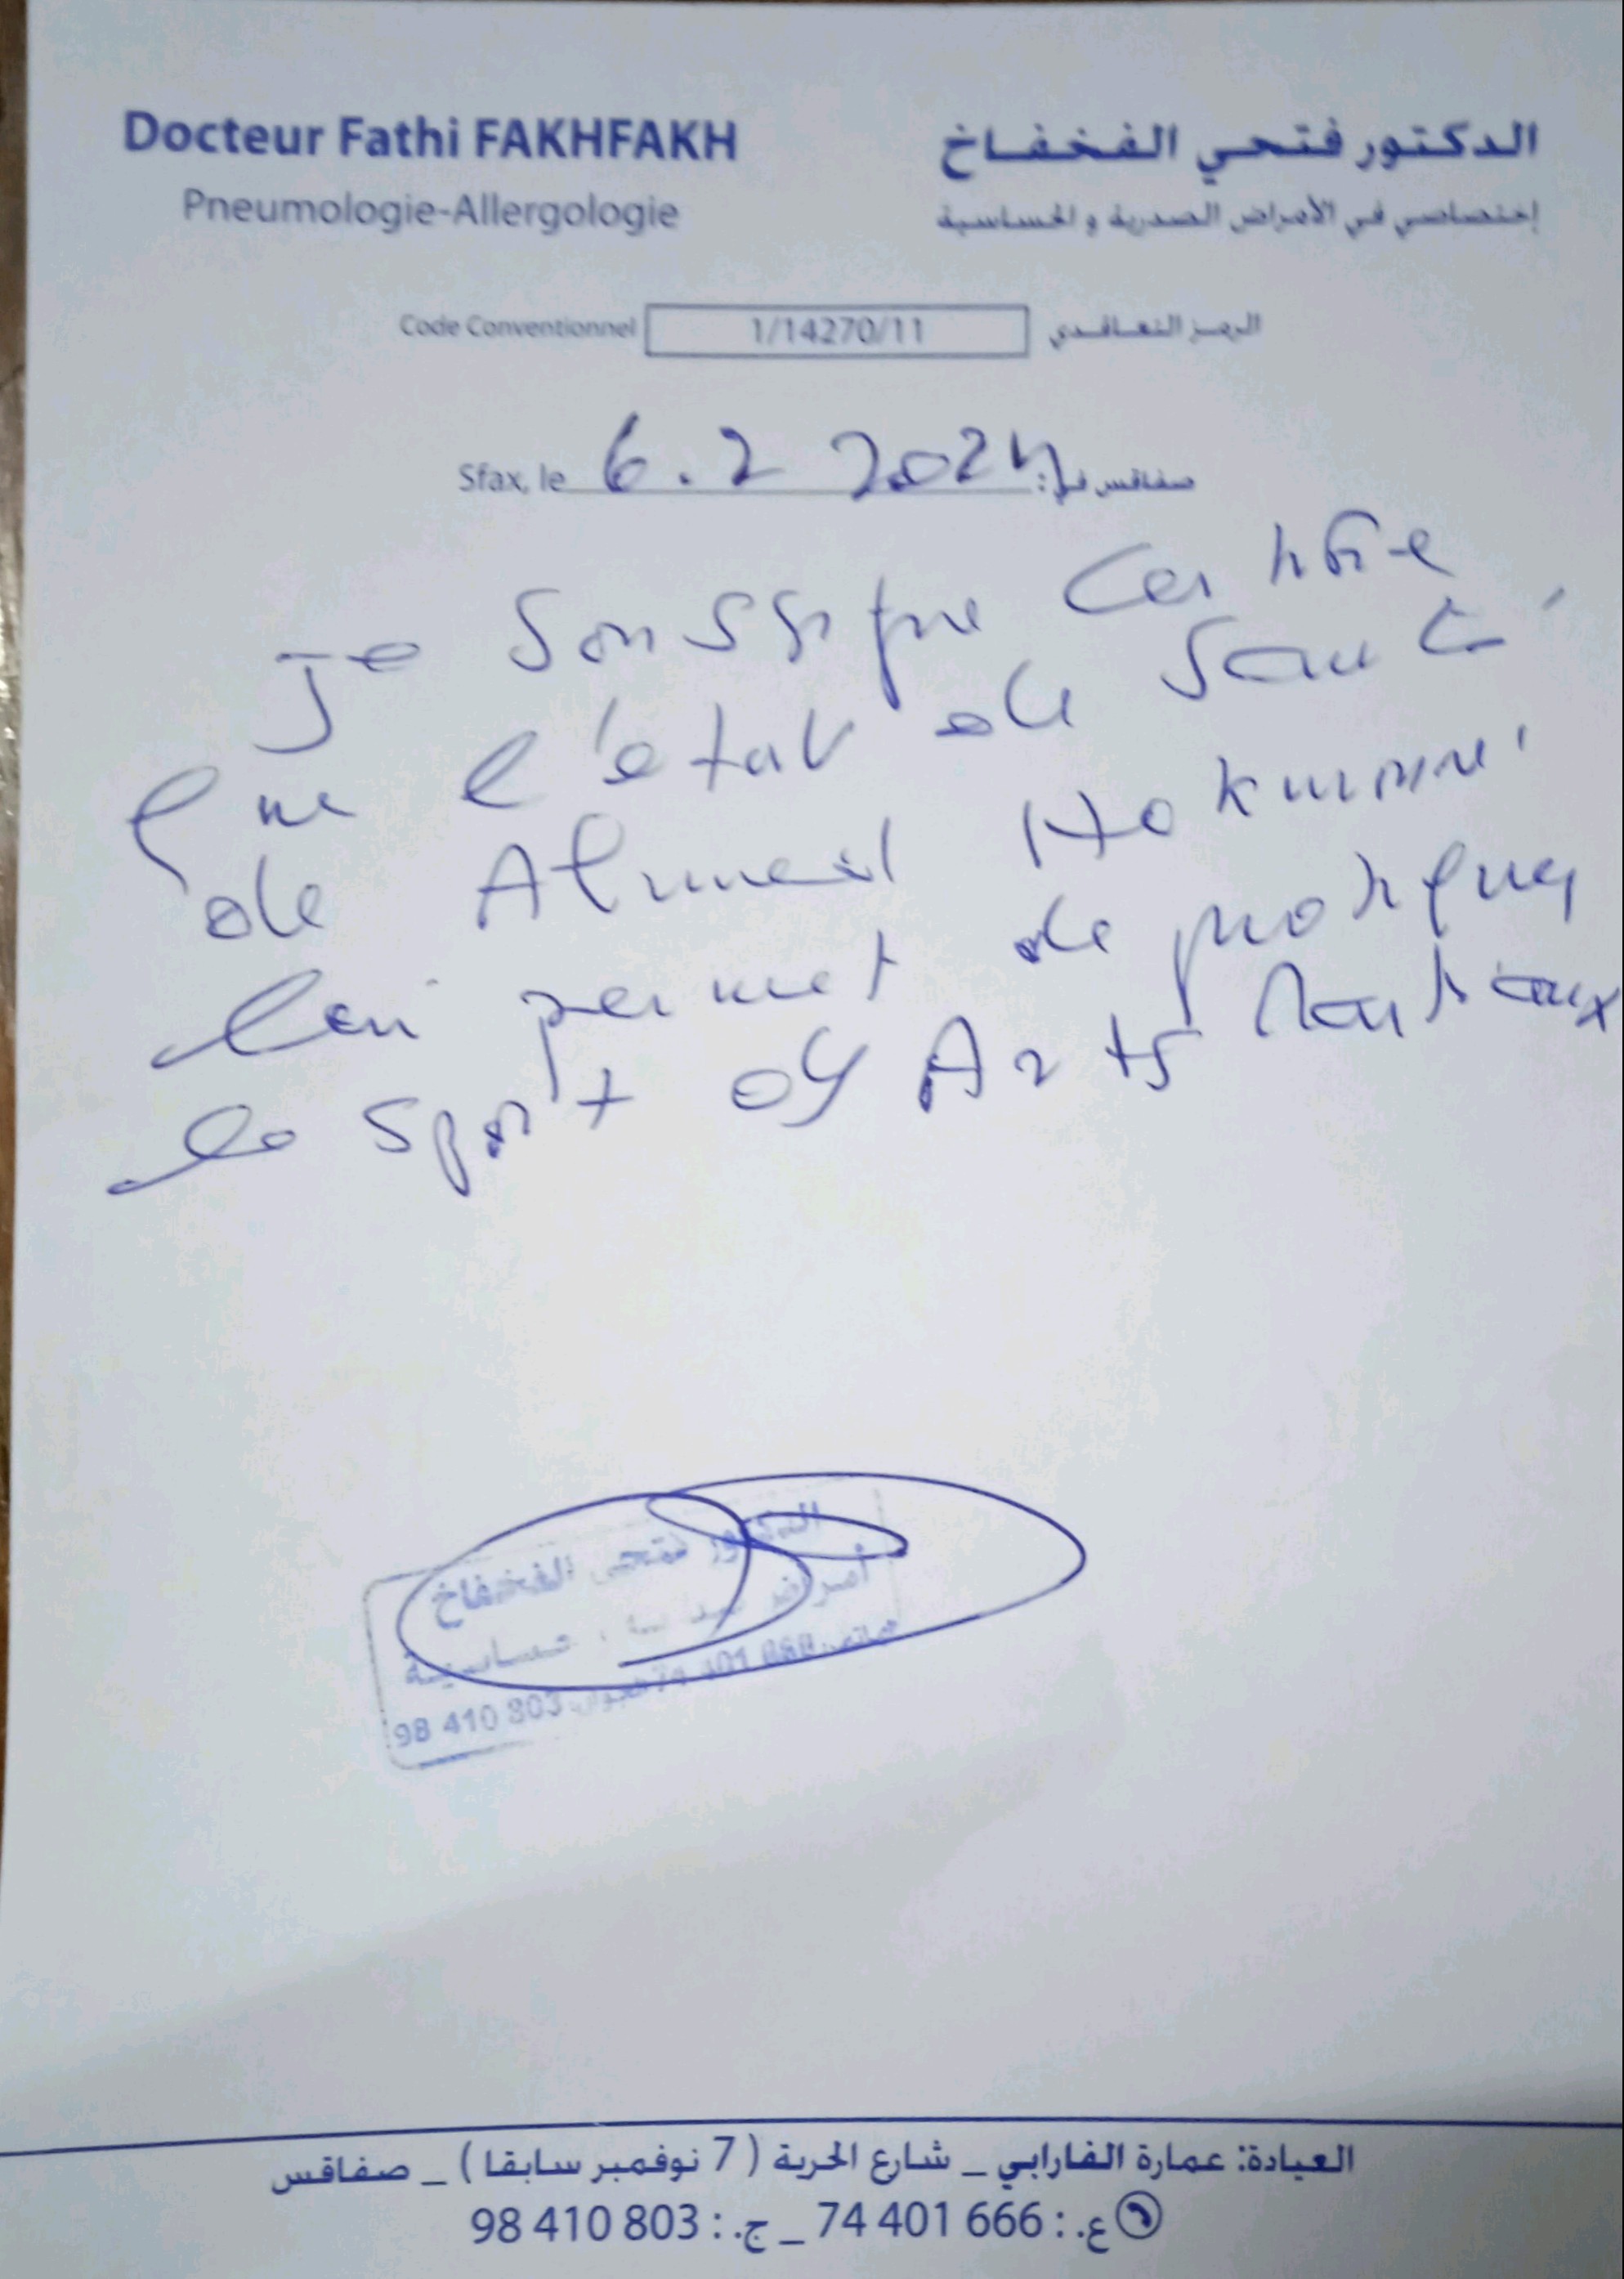 Docteur Fathi FAKHFAKH
Pneumologie-Allergologie
الدكتور فتحي الفخفاخ
إختصاصي في الأمراض الصدرية و الحساسية
Code Conventionnel 1/14270/11 الرمز التعاقدي
Sfax, le 6.2 2024 صفاقس في:
Je soussigné certifie
que l'état de santé
de Ahmed
lui permet de pratiquer
le sport Arts Martiaux
الدكتور فتحي الفخفاخ
أمراض صدرية حساسية
98 410 803
العيادة: عمارة الفارابي _ شارع الحرية ( 7 نوفمبر سابقا ) _ صفاقس
ع. : 74 401 666 _ ج. : 98 410 803